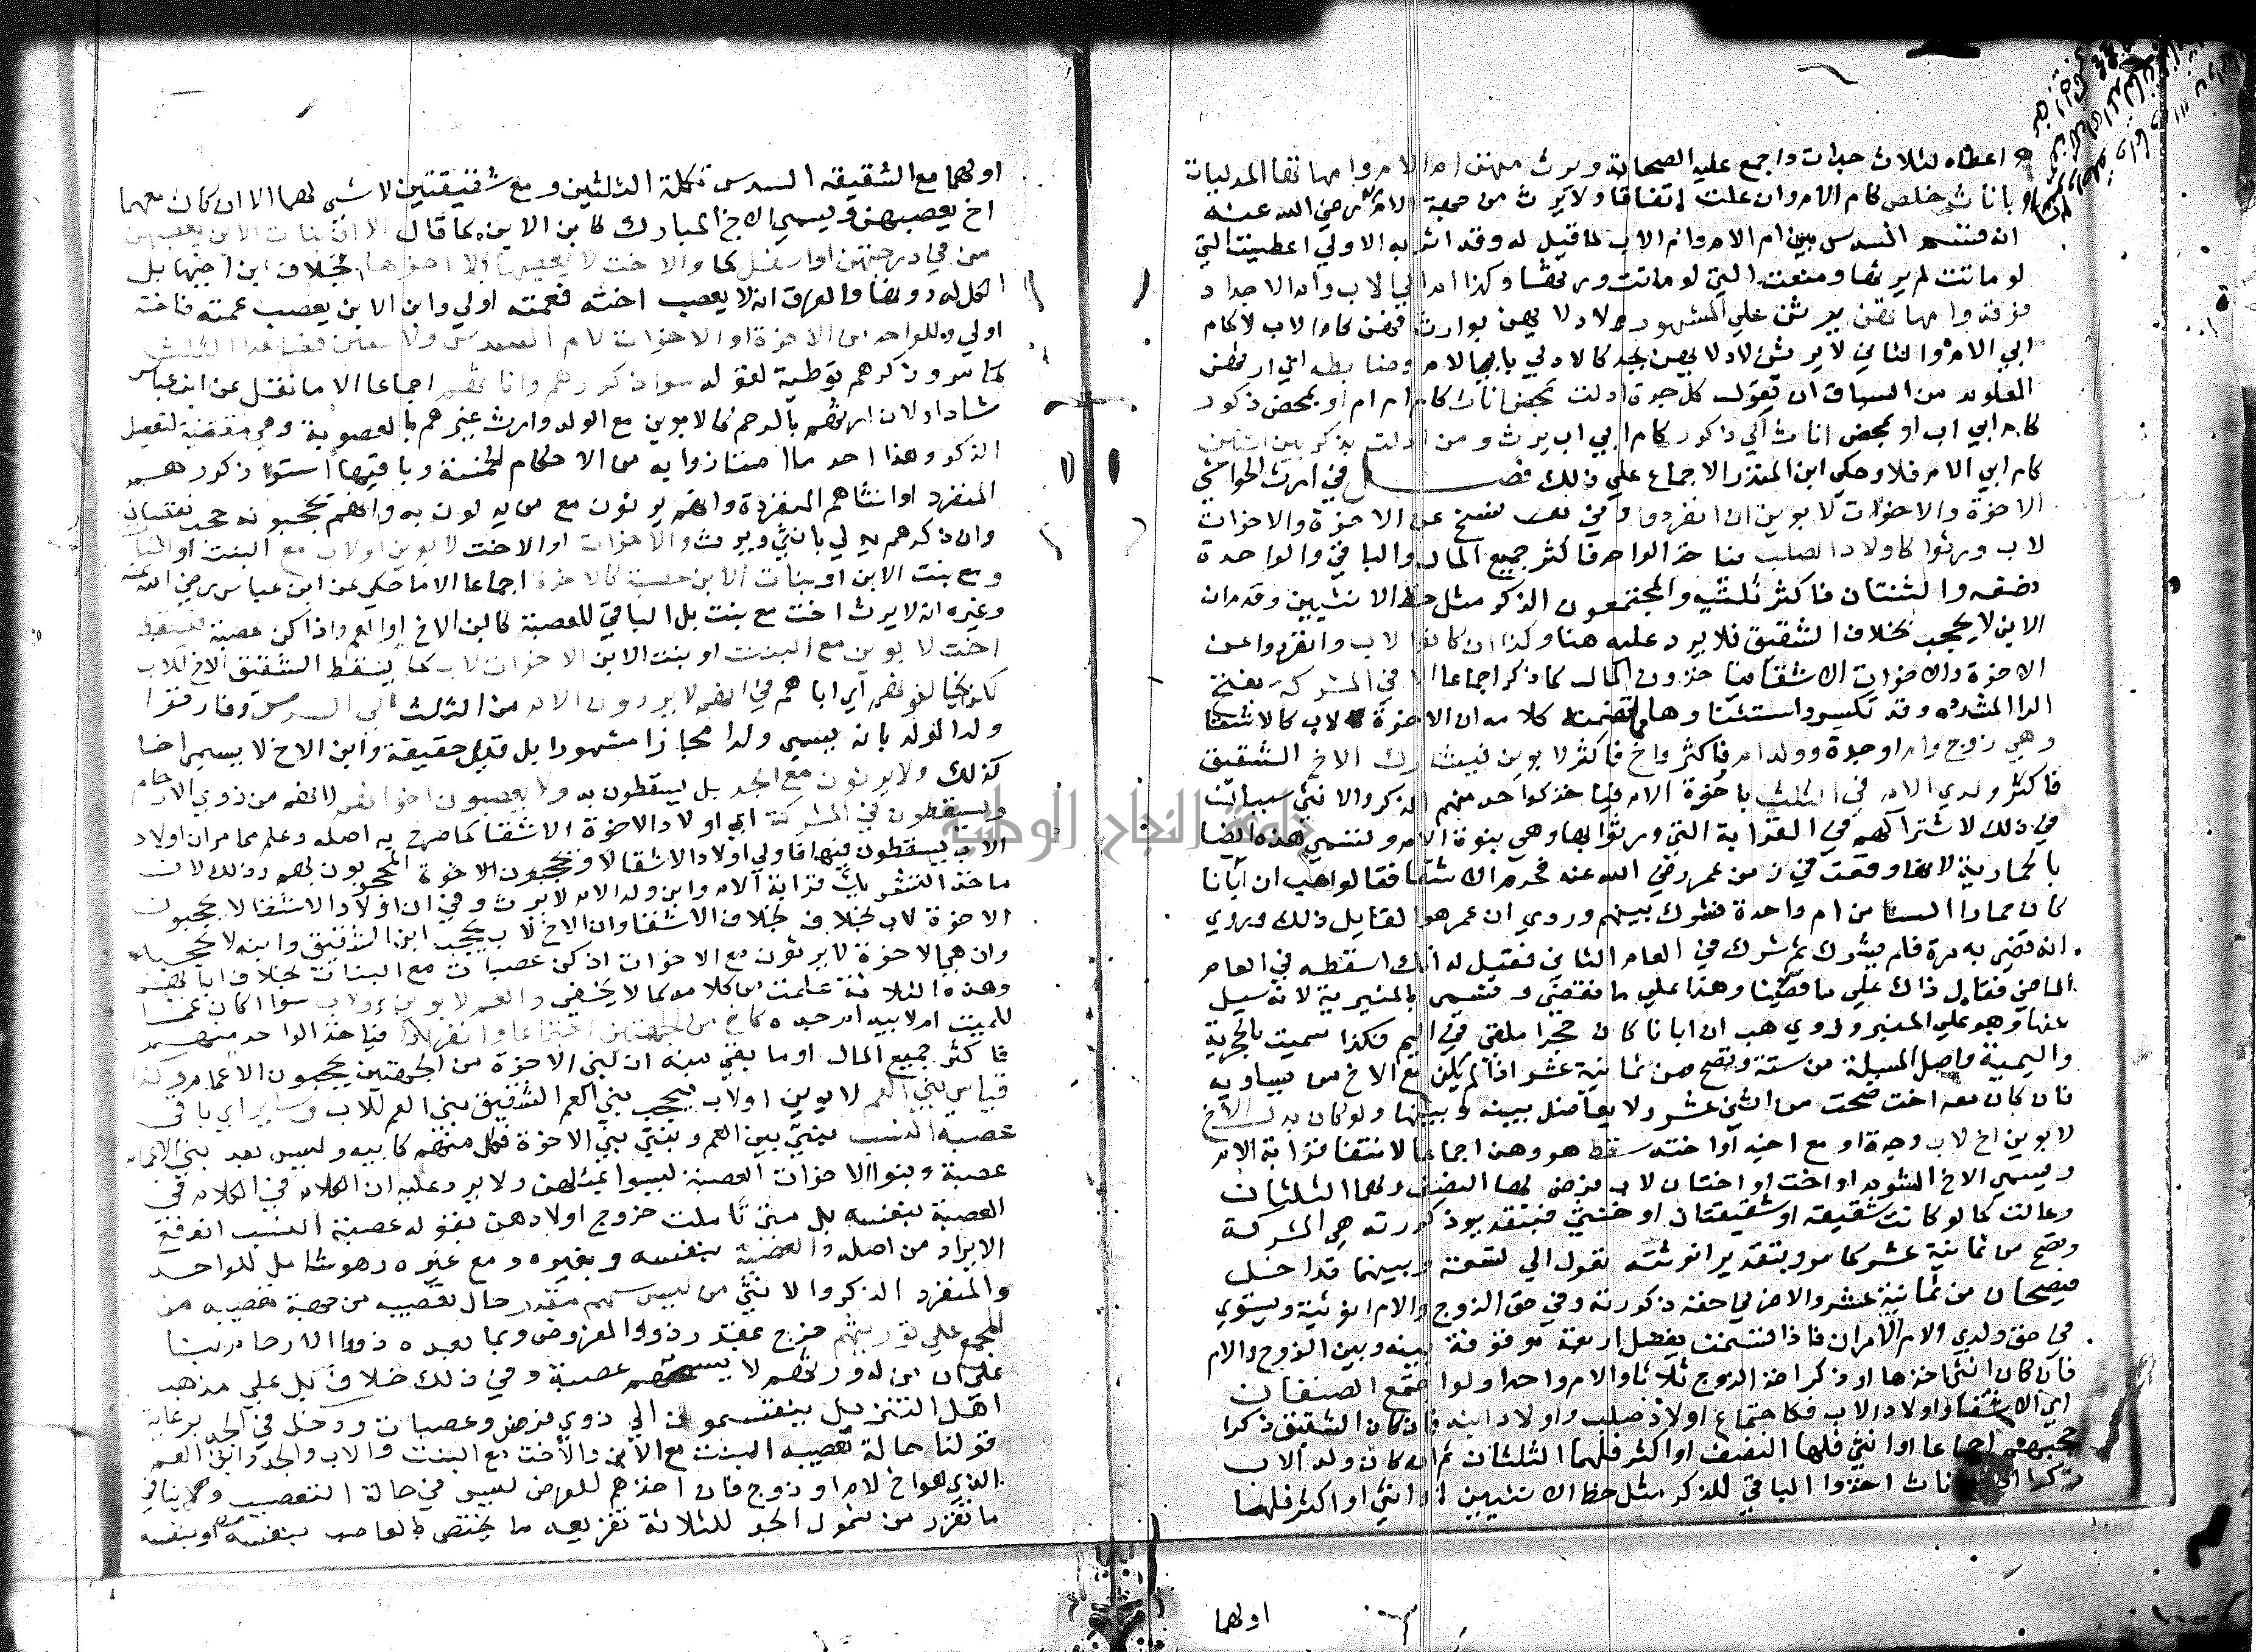 اعطاه لثلاث جدات واجمع عليه الصحابة ويرث منهن ام الام وامهاتها المدليات
بانات خلص كام الام وان علت اتفاقا ولا يرث من جهة الام رضي الله عنه
ان قسم السدس بين ام الام وام الاب لما قيل له وقد اثر به الاولي اعطيت التي
لو ماتت لم يرثها ومنعت التي لو ماتت ورثها وكذا ام ابي الاب وام الاجداد
فوقه وامهاتهن يرثن علي المشهور لادلايهن بوارث فهن كام الاب لا كام
ابي الام والثاني لا يرثن لادلايهن بجد كالادلي بابي الام وضابطه اي ارثهن
المعلوم من السياق ان تقول كل جدة ادلت بمحض اناث كام ام ام او بمحض ذكور
كام ابي اب او بمحض اناث الي ذكور كام ام ابي اب يرث ومن ادلت بذكر بين انثيين
كام ابي الام فلا وحكي ابن المنذر الاجماع علي ذلك فصل في ارث الحواشي
الاخوة والاخوات لابوين ان انفردوا وفي نسخ عن الاخوة والاخوات
لاب ورثوا كاولاد الصلب فياخذ الواحد فاكثر جميع المال والباقي والواحدة
نصفه والثنتان فاكثر ثلثيه والمجتمعون الذكر مثل حظ الانثيين وقد مر ان
الابن لا يحجب بخلاف الشقيق فلا يرد عليه هنا وكذا ان كانوا لاب وانفردوا عن
الاخوة والاخوات الاشقا فياخذون المال كما ذكر اجماعا الا في المشركة بفتح
الرا المشددة وقد تكسر استثنا وها لتضمنه كلامه ان الاخوة لاب كالاشقا
وهي زوج وام او جدة وولد ام فاكثر واخ فاكثر لابوين فيشارك الاخ الشقيق
فاكثر ولدي الام في الثلث باخوة الام فياخذ كواحد منهم الذكر والانثي سيان
في ذلك لاشتراكهم في القرابة التي ورثوا بها وهي بنوة الام وتسمي هذه ايضا
بالحمارية لانها وقعت في زمن عمر رضي الله عنه فحرم الاشقا فقالوا هب ان ابانا
كان حمارا السنا من ام واحدة فشرك بينهم وروي ان عمر هو القايل ذلك وروي
انه قضي به مرة فلم يشرك ثم شرك في العام الثاني فقيل له انك اسقطه في العام
الماضي فقال ذاك علي ما قضينا وهذا علي ما نقضي وتسمي بالمنبرية لانه سيل
عنها وهو علي المنبر وروي هب ان ابانا كان حجرا ملقي في اليم فلذا سميت بالحجرية
واليمية واصل المسيلة من ستة وتصح من ثمانية عشر اذا لم يكن مع الاخ من يساويه
فان كان معه اخت صحت من اثني عشر ولا تفاضل بينه وبينها ولو كان بدل الاخ
لابوين اخ لاب وحده او مع اخيه او اخته سقط هو وهن اجماعا لانتفا قرابة الام
ويسمي الاخ الشوم او اخت او اختان لاب فرض لها النصف ولهما الثلثان
وعالت كما لو كانت شقيقة او شقيقتان او خنثي فبتقدير ذكورته هي المشركة
وتصح من ثمانية عشر كما مر وبتقدير انوثته تعول الي تسعة وبينهما تداخل
فيصحان من ثمانية عشر والاضر في حقه ذكورته وفي حق الزوج والام انوثته ويستوي
في حق ولدي الام الامران فاذا قسمت يفضل اربعة موقوفة بينه وبين الزوج والام
فان كان انثي اخذها او ذكرا اخذ الزوج ثلاثا والام واحدا ولو اجتمع الصنفان
اي الاشقا واولاد الاب فكاجتماع اولاد صلب واولاد ابنه فان كان الشقيق ذكرا
حجبهم اجماعا او انثي فلها النصف او اكثر فلهما الثلثان ثم ان كان ولد الاب
ذكرا او اناث اخذوا الباقي للذكر مثل حظ الانثيين او انثي او اكثر فلها
اولهما
اولهما مع الشقيقه السدس تكملة الثلثين ومع شقيقتين لا شي لهما الا ان كان معهما
اخ يعصبهن ويسمي الاخ المبارك كابن الابن كما قال الا ان بنات الابن يعصبهن
من في درجتهن او اسفل كما والاخت لا يعصبها الا اخوها بخلاف ابن اخيها بل
الكل له دونها والفرق انه لا يعصب اخته فعمته اولي وابن الابن يعصب عمته فاخته
اولي وللواحد من الاخوة او الاخوات لام السدس ولاثنين فصاعدا الثلث
كما مر وذكرهم توطية لقوله سوا ذكورهم واناثهم اجماعا الا ما نقل عن ابن عباس
شاذا ولان ارثهم بالرحم كالابوين مع الولد وارث غيرهم بالعصوبة وهي مقتضية لتفضيل
الذكر وهذا احد ما امتازوا به من الاحكام الخمسة وباقيها استوا ذكورهم
المنفرد وانثاهم المنفردة وانهم يرثون مع من يدلون به وانهم يحجبونه حجب نقصان
وان ذكرهم يدلي بانثي ويرث والاخوات او الاخت لابوين او لاب مع البنت او البنات
ومع بنت الابن او بنات الابن عصبة كالاخوة اجماعا الا ما حكي عن ابن عباس رضي الله عنه
وغيره انه لا يرث اخت مع بنت بل الباقي للعصبة كابن الاخ او العم واذا كن عصبة فتسقط
اخت لابوين مع البنت او بنت الابن الاخوات لاب كما يسقط الشقيق الاخ للاب
لكن يخالفونهم اي اباهم في انهم لا يردون الام من الثلث الي السدس وفارقوا
ولد الولد بانه يسمي ولدا مجازا مشهورا بل قيل حقيقة وابن الاخ لا يسمي اخا
كذلك ولا يرثون مع الجد بل يسقطون به ولا يعصبون اخواتهم لانهم من ذوي الارحام
ويسقطون في المشركة اي اولاد الاخوة الاشقا كما صرح به اصله وعلم مما مر ان اولاد
الاب يسقطون فيها فاولي اولاد الاشقا لا ويحجبون الاخوة المحجوبون بهم وذلك لان
ماخذ التشريك قرابة الام وابن ولد الام لا يرث وفي ان اولاد الاشقا لا يحجبون
الاخوة لاب بخلاف الاشقا وان الاخ لاب يحجب ابن الشقيق وابنه لا يحجبه
وان بني الاخوة لا يرثون مع الاخوات اذ كن عصبات مع البنات بخلاف ابايهم
وهذه الثلاثة علمت من كلامه كما لا يخفي والعم لابوين ولاب سوا اكان عم
للميت ام لابيه ام جده كاخ من الجهتين اجتماعا وانفرادا فياخذ الواحد منهم
فاكثر جميع المال او ما بقي منه ان بني الاخوة من الجهتين يحجبون الاعمام وكذا
قياس بني العم لابوين او لاب فيحجب بني العم الشقيق بني العم للاب وساير اي باقي
عصبة النسب كبني بني العم وبني بني الاخوة فكل منهم كابيه وليس بعد بني الاعمام
عصبة وبنوا الاخوات العصبة ليسوا مثلهن ولا يرد عليه ان الكلام في الكلام في
العصبة بنفسه بل متي تاملت خروج اولادهن بقوله عصبة النسب اندفع
الايراد من اصله والعصبة بنفسه وبغيره ومع غيره وهو شامل للواحد
والمنفرد الذكر والانثي من ليس سهم مقدر حال تعصيبه من جهة تعصيبه من
المجمع علي توريثهم خرج بمقدر ذووا الفروض وبما بعده ذووا الارحام بنا
علي ان من لم ورثهم لا يسميهم عصبة وفي ذلك خلاف بل علي مذهب
اهل التنزيل ينقسمون الي ذوي فرض وعصبات ودخل في الحد برعاية
قولنا حالة تعصيبه البنت مع الابن والاخت مع البنت والاب والجد وابن العم
الذي هو اخ لام او زوج فان اخذهم للفرض ليس في حالة التعصيب وهو ينافي
ما تقرر من شمول الحد للثلاثة تفريعه ما يختص بالعاصب بنفسه او بنفسه
جامعة النجاح الوطنية